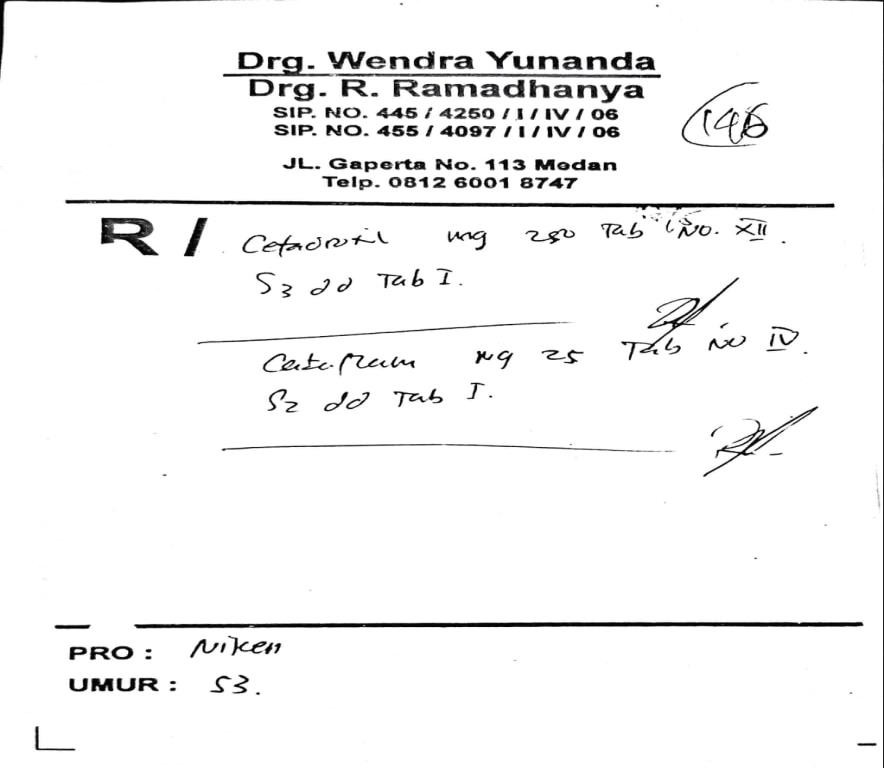 Drg. Wendra Yunanda
Drg. R. Ramadhanya
SIP. NO. 445 / 4250 / I / IV / 06
SIP. NO. 455 / 4097 / I / IV / 06
146
JL. Gaperta No. 113 Medan
Telp. 0812 6001 8747
R / Cefadroxil mg 250 Tab No. XII.
S3 dd Tab I.
mg 25 Tab No IV.
S2 dd Tab I.
PRO : Niken
UMUR : 53.